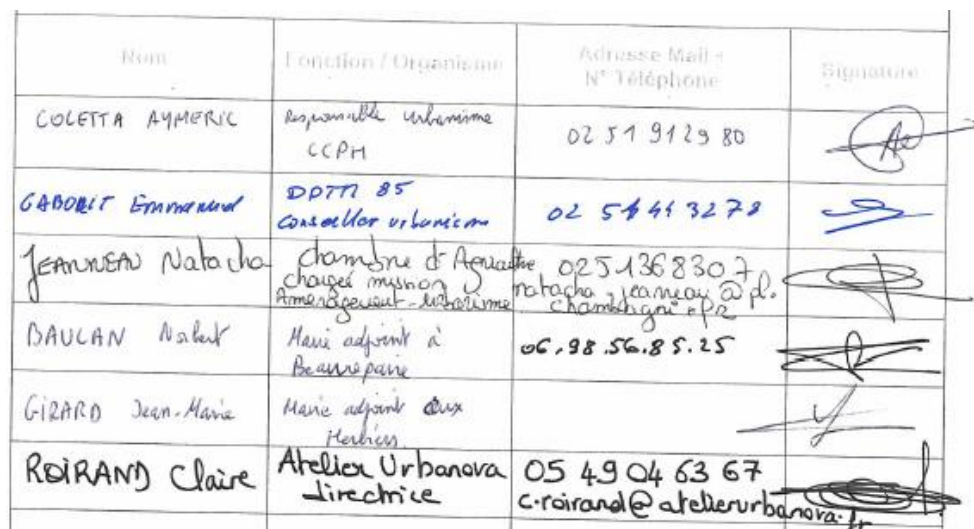 Nom
Fonction / Organisme
Adresse Mail +
N° Téléphone
Signature
COLETTA AYMERIC
Responsable urbanisme
CCPH
02 51 91 29 80
GABORIT Emmanuel
DDTM 85
Conseiller urbanisme
02 51 44 32 78
JEANNEAU Natacha
Chambre d'Agriculture
chargée mission
Aménagement-Urbanisme
0251368307
natacha.jeanneau@pl.
chambagri.fr
BAULAN Norbert
Maire adjoint à
Beaurepaire
06.98.56.85.25
GIRARD Jean-Marie
Maire adjoint aux
Herbiers
ROIRAND Claire
Atelier Urbanova
directrice
05 49 04 63 67
c.roirand@atelierurbanova.fr